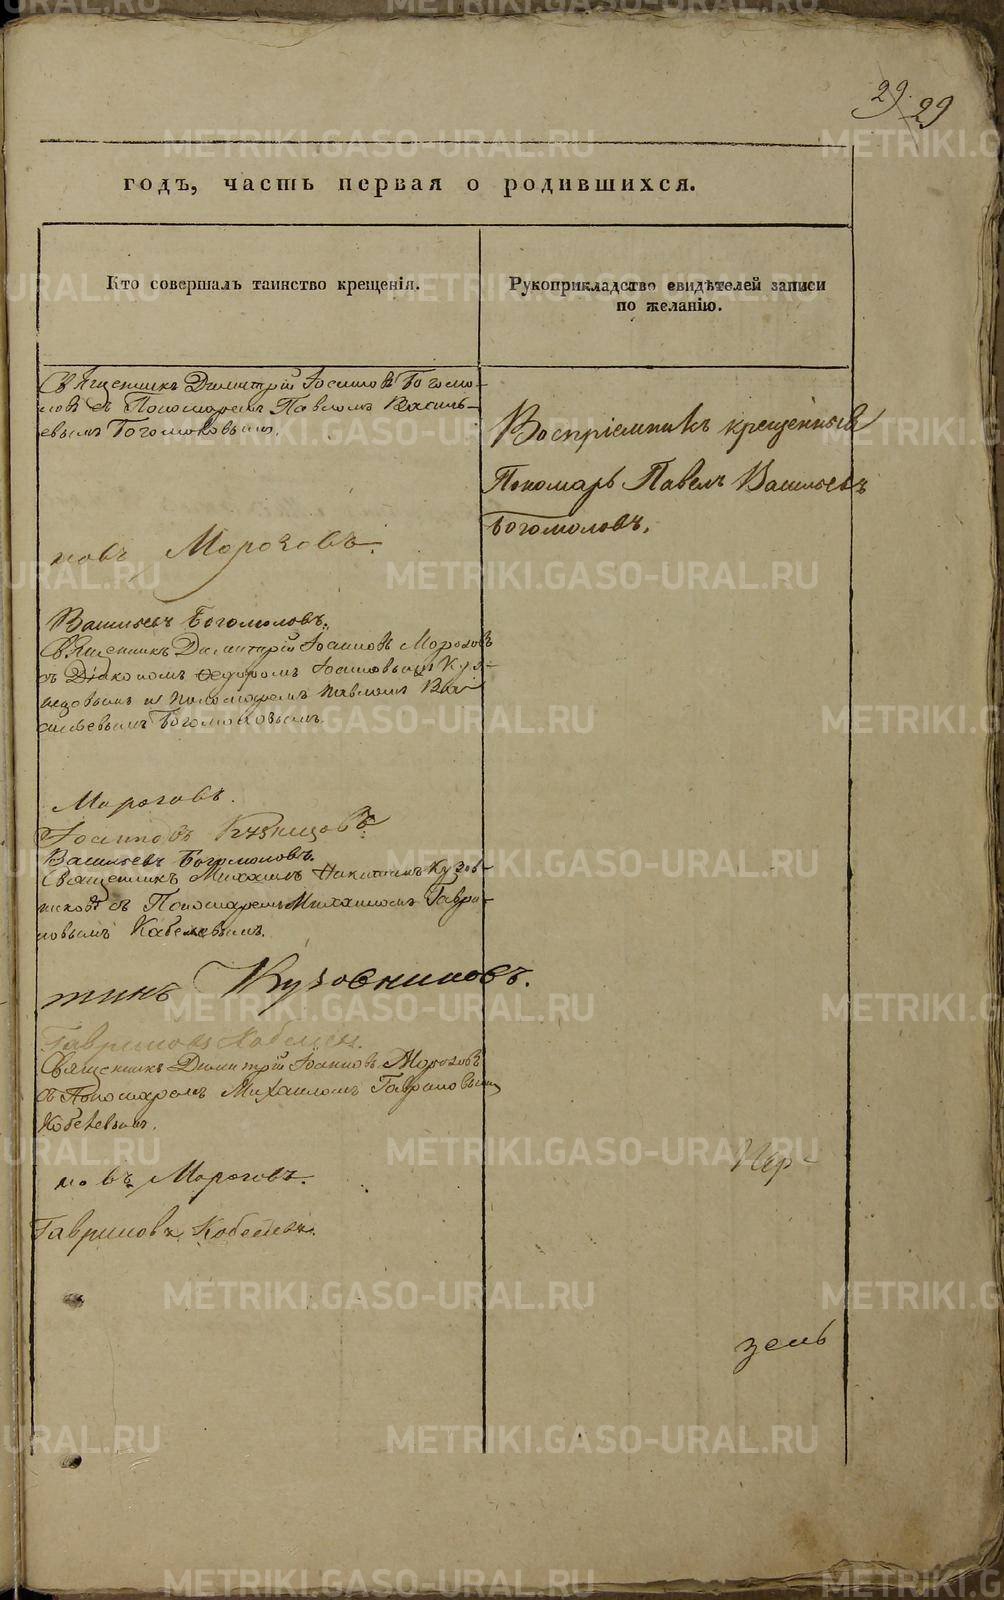 29. 29
годъ, часть первая о родившихся.
Кто совершалъ таинство крещенія.
Рукоприкладство свидѣтелей записи
по желанію.
Священникъ Димитрій Іоанновъ Богомо-
ловъ съ Пономаремъ Павломъ Василь-
евымъ Богомоловымъ.
Воспріемникъ крещенныхъ
Пономарь Павелъ Васильевъ
Богомоловъ.
новъ Морозовъ.
Васильевъ Богомоловъ.
Священникъ Димитрій Іоанновъ Морозовъ
съ Діакономъ Ѳедоромъ Іоанновымъ Куз-
нецовымъ и Пономаремъ Павломъ Ва-
сильевымъ Богомоловымъ.
Морозовъ.
Іоанновъ Кузнецовъ
Васильевъ Богомоловъ.
Священникъ Михаилъ Никитинъ Кузов-
никовъ съ Пономаремъ Михаиломъ Гаври-
ловымъ Кобелевымъ.
тинъ Кузовниковъ.
Гавриловъ Кобелевъ.
Священникъ Димитрій Іоанновъ Морозовъ
съ Пономаремъ Михаиломъ Гавриловымъ
Кобелевымъ.
новъ Морозовъ.
Гавриловъ Кобелевъ.
зень
METRIKI.GASO-URAL.RU